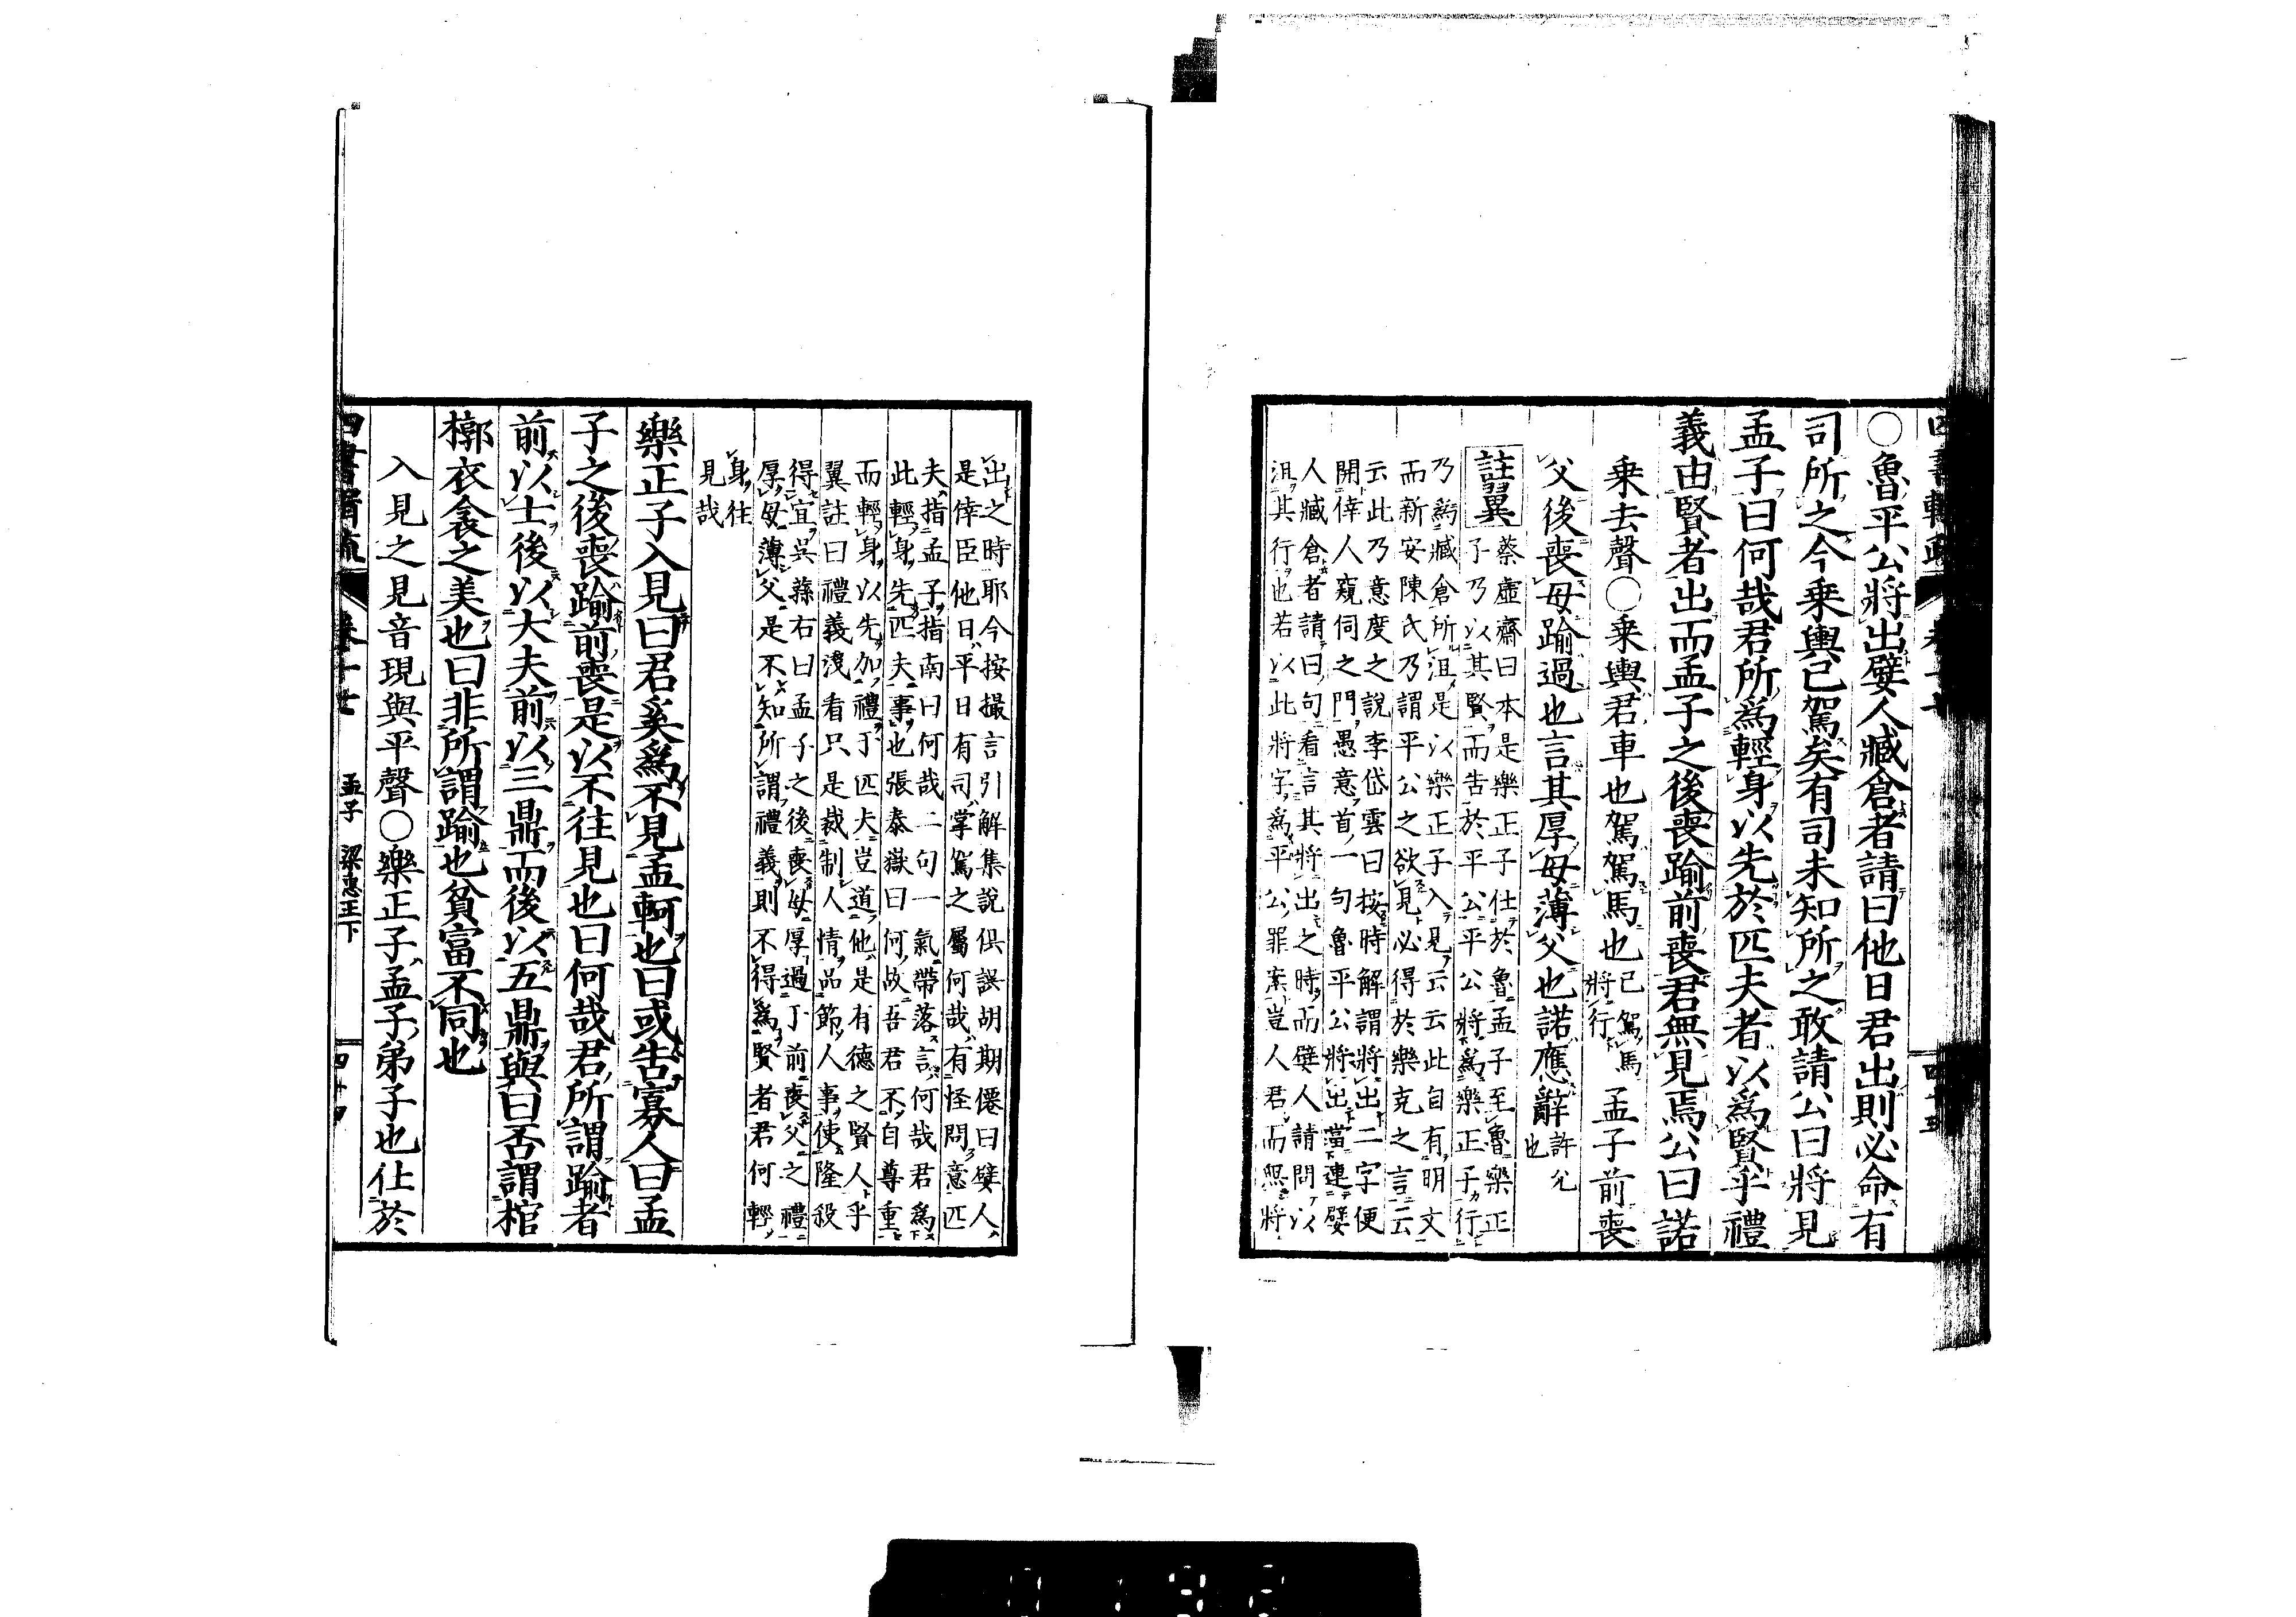 ○魯平公將出嬖人臧倉者請曰他日君出則必命有
司所之今乗輿已駕矣有司未知所之敢請公曰將見
孟子曰何哉君所爲輕身以先於匹夫者以爲賢乎禮
義由賢者出而孟子之後喪踰前喪君無見焉公曰諾
乗去聲○乗輿君車也駕駕馬也已駕馬將行孟子前喪
父後喪母踰過也言其厚母薄父也諾應辭許允也
註翼
蔡虛齋曰本是樂正子仕於魯孟子至魯樂正
子乃以其賢而告於平公平公將爲樂正子行
乃爲臧倉所沮是以樂正子入見云云此自有明文
而新安陳氏乃謂平公之欲見必得於樂克之言云
云此乃意度之說李岱雲曰按時解謂將出二字便
開倖人窺伺之門愚意首一句魯平公將出當連嬖
人臧倉者請曰句看言其將出之時而嬖人請問以
沮其行也若以此將字爲平公罪案豈人君而無將
出之時耶今按撮言引解集說俱誤胡期僊曰嬖人
是倖臣他日平日有司掌駕之屬何哉有怪問意匹
夫指孟子指南曰何哉二句一氣帶落言何哉君爲
此輕身先匹夫事也張泰嶽曰何故吾君不自尊重
而輕身以先加禮于匹夫豈道他是有德之賢人乎
翼註曰禮義淺看只是裁制人情品節人事使隆殺
得宜吳蓀右曰孟子之後喪母厚過于前喪父之禮
厚母薄父是不知所謂禮義則不得爲賢者君何輕
身往
見哉
樂正子入見曰君奚爲不見孟軻也曰或告寡人曰孟
子之後喪踰前喪是以不往見也曰何哉君所謂踰者
前以士後以大夫前以三鼎而後以五鼎與曰否謂棺
槨衣衾之美也曰非所謂踰也貧富不同也
入見之見音現與平聲○樂正子孟子弟子也仕於
孟子 梁惠王下